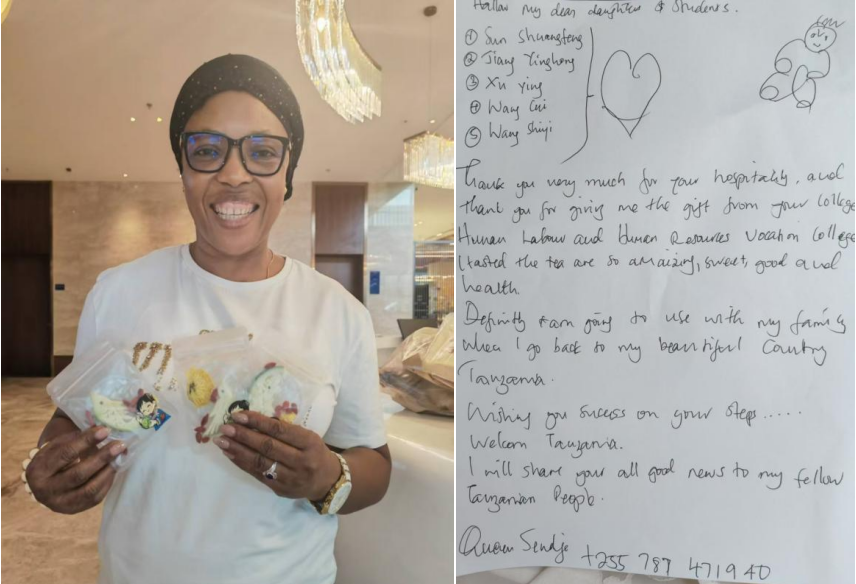 Hallow my dear daughters & Students.
① Sun Shuangfeng
② Jiang Yinghong
③ Xu Ying
④ Wang Cui
⑤ Wang Shiyi
Thank you very much for your hospitality, and
thank you for giving me the gift from your College
Hunan Labour and Human Resources Vocation College
I tasted the tea are so amaizing, sweet, good and
health.
Definitly I am going to use with my family
when I go back to my beautiful Country
Tanzania.
Wishing you success on your steps.....
Welcom Tanzania.
I will share your all good news to my fellow
Tanzanian People.
Queen Sendje +255 787 471940